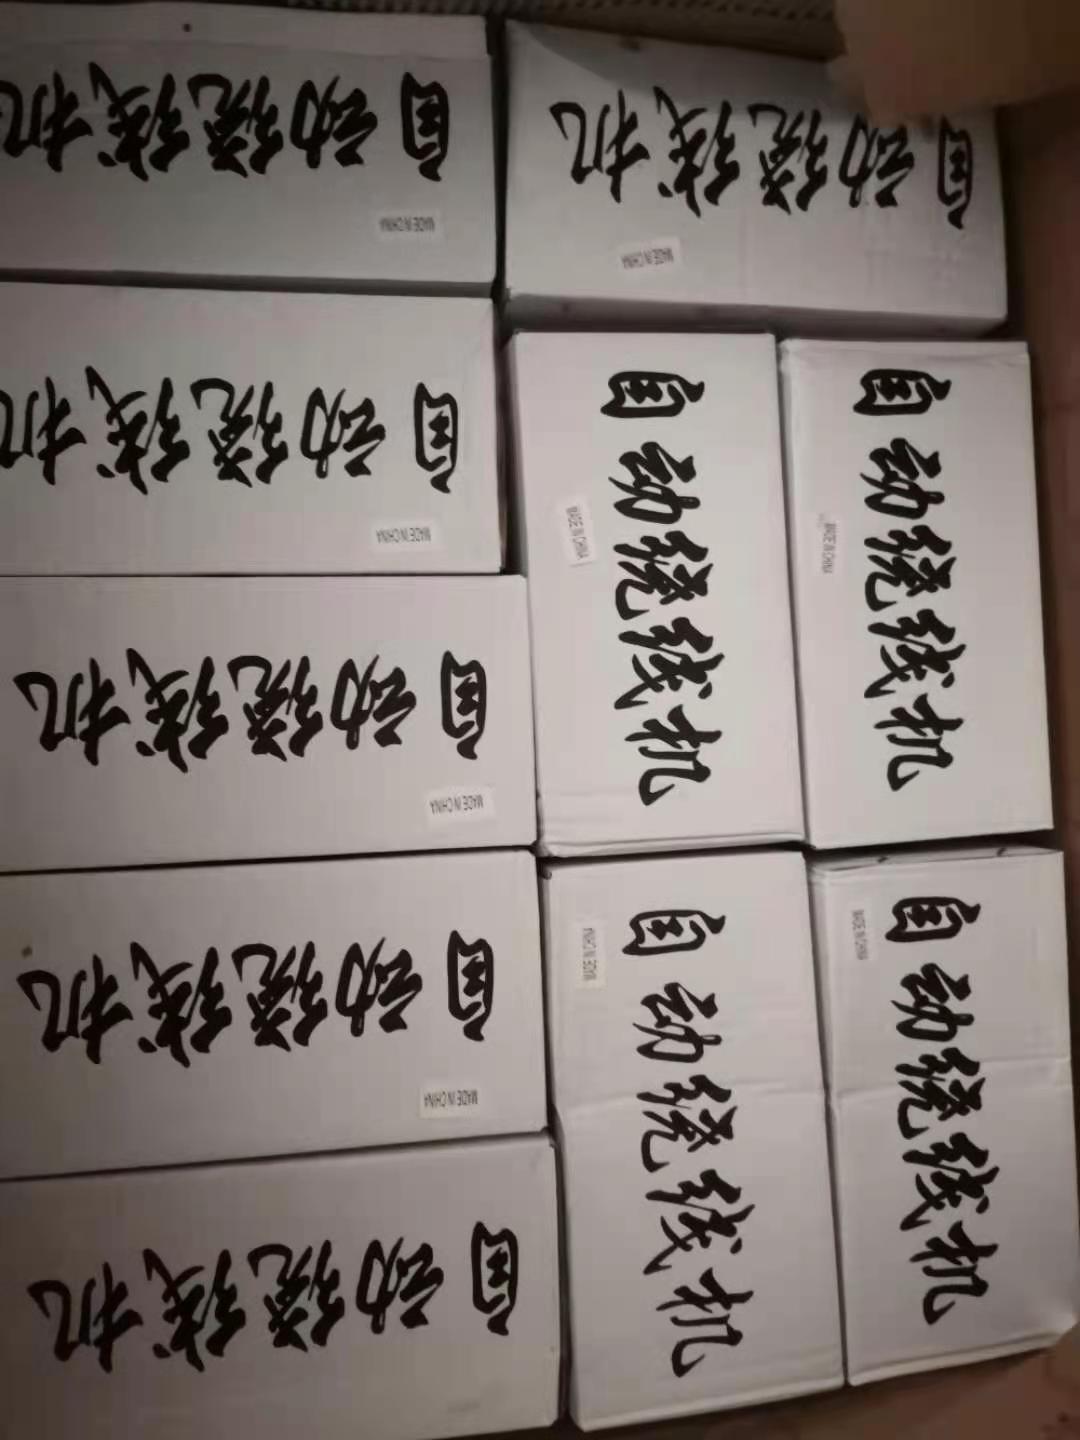 自动绕线机
MADE IN CHINA
自动绕线机
MADE IN CHINA
自动绕线机
MADE IN CHINA
自动绕线机
MADE IN CHINA
自动绕线机
MADE IN CHINA
自动绕线机
MADE IN CHINA
自动绕线机
MADE IN CHINA
自动绕线机
MADE IN CHINA
自动绕线机
MADE IN CHINA
自动绕线机